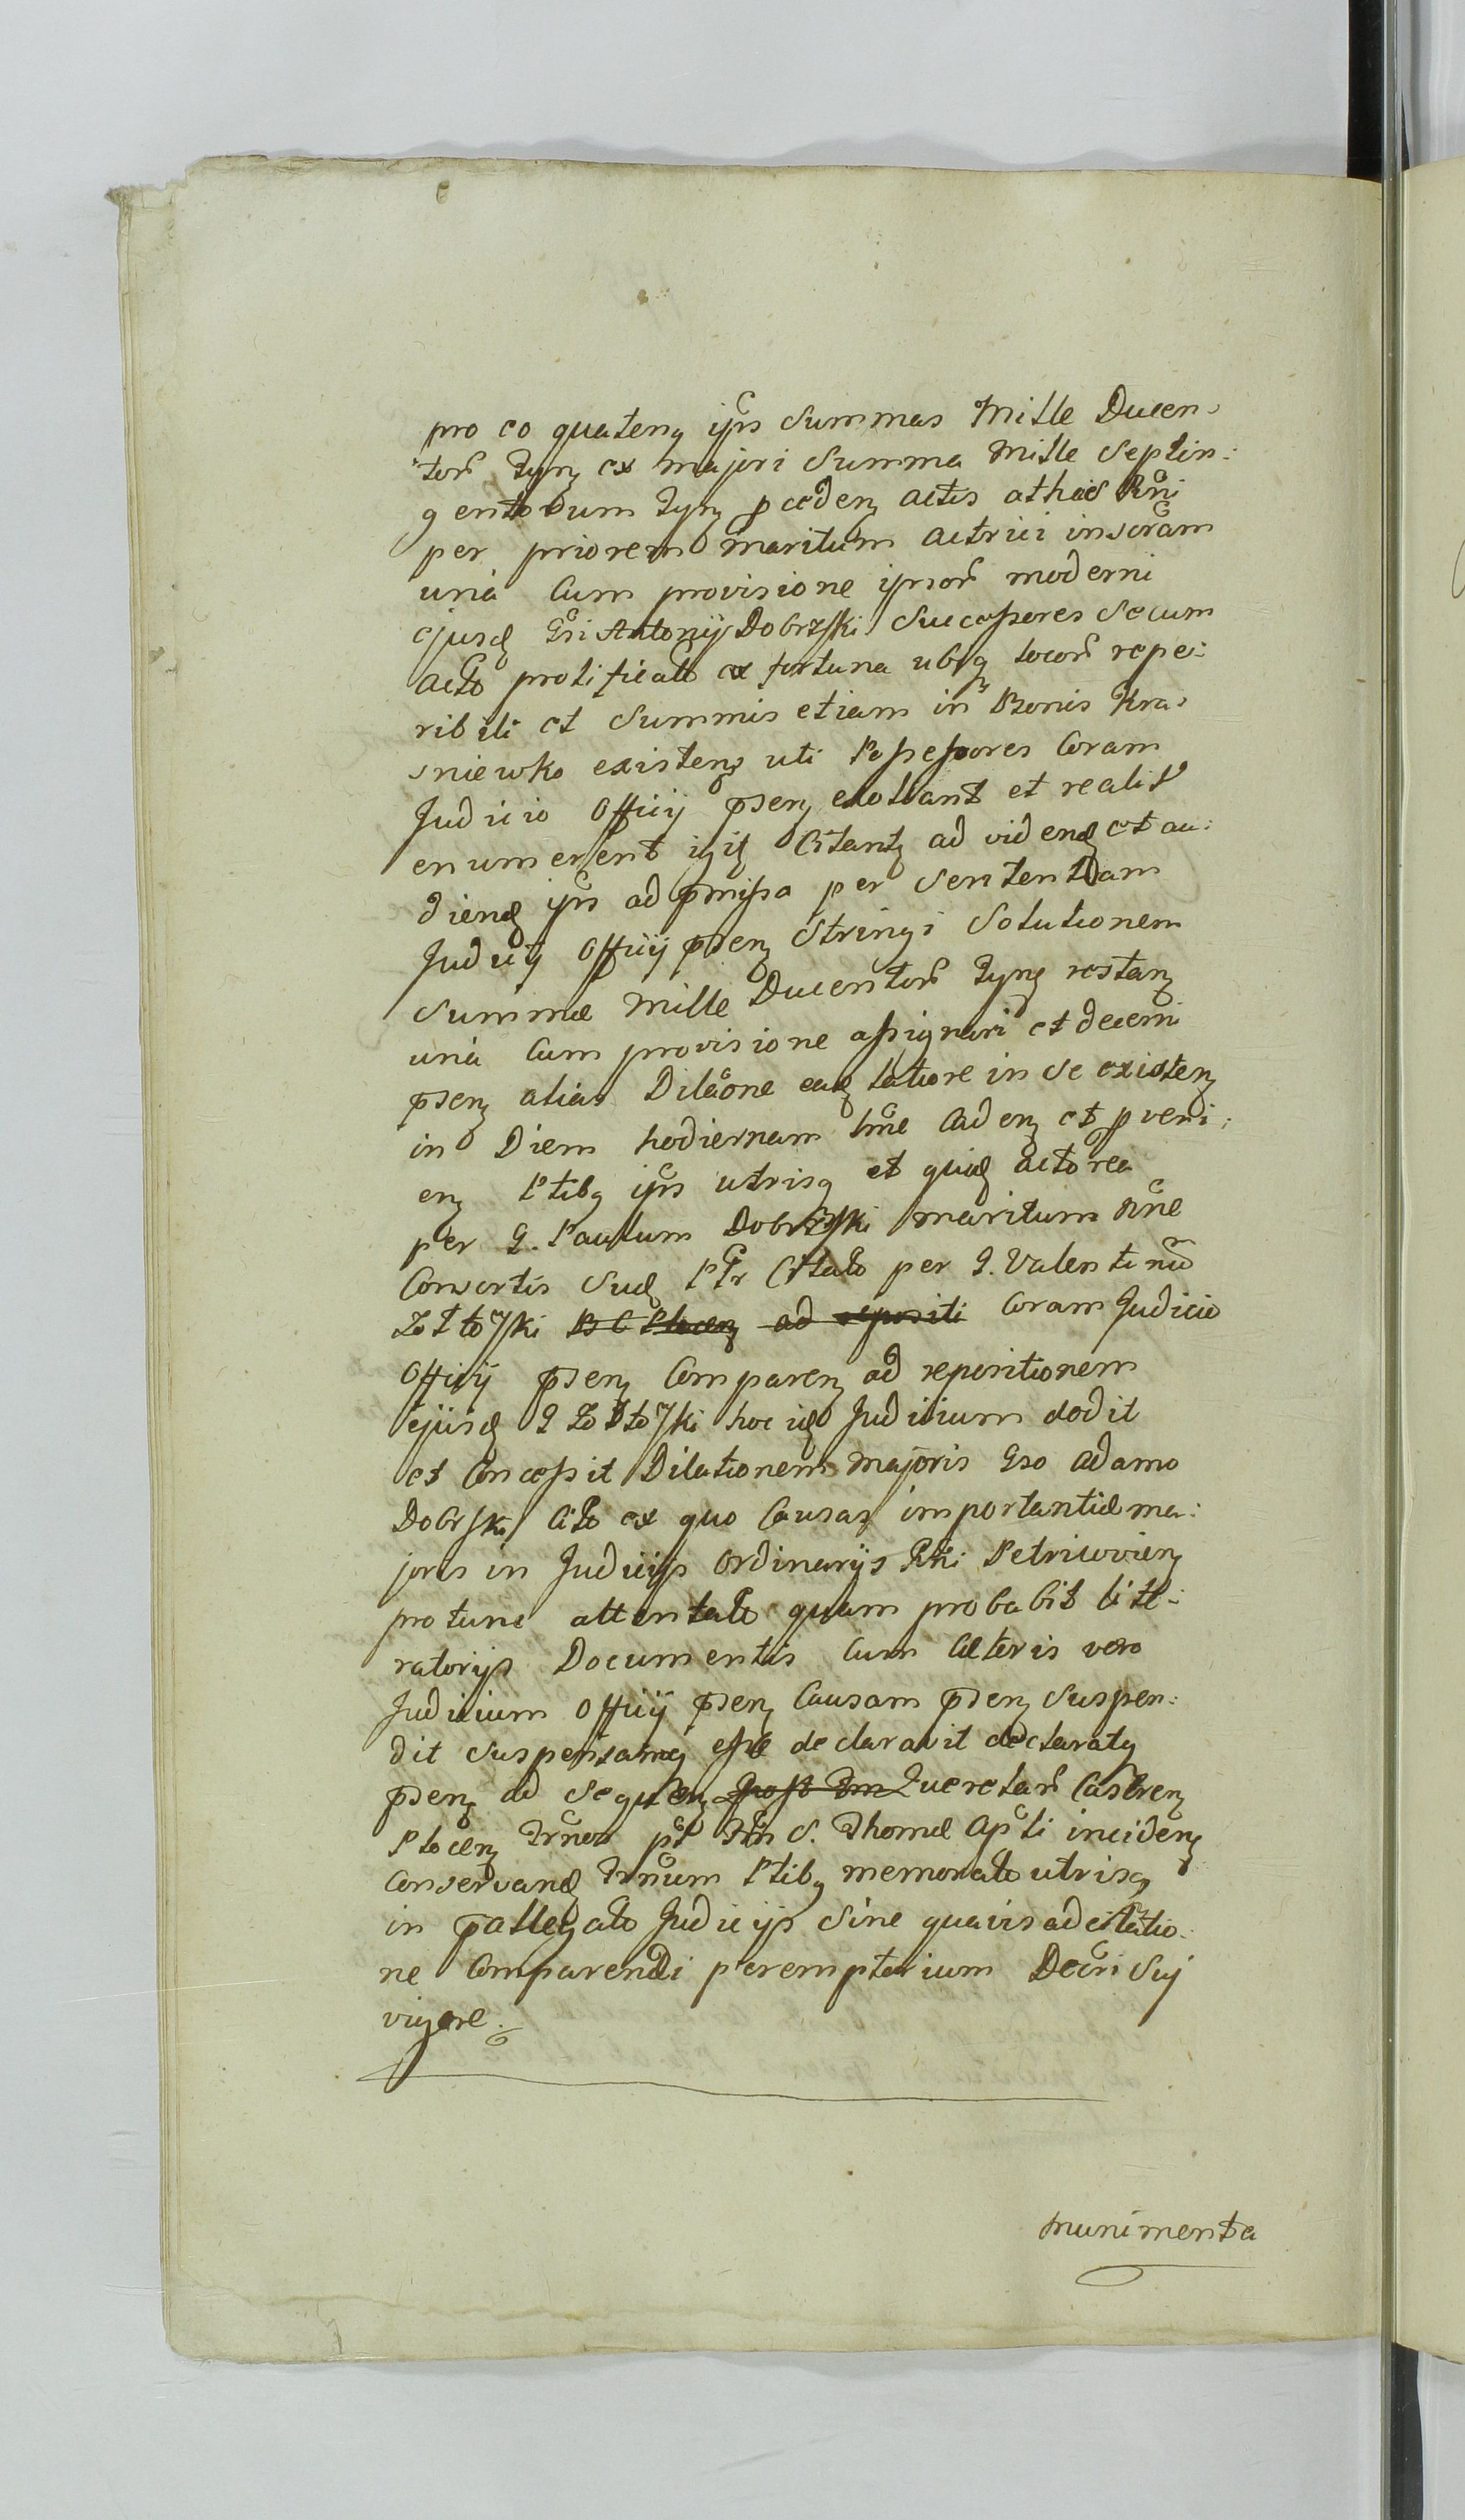 pro eo quateng ips Summas Mille Ducen:
tor Tyng ex majori Summa Mille Septin:
gentorum Tyng p ceden actis athes Rni
per priorem maritum Actrici inscram
una Cum provisione ipsor moderni
ejusq Gsi Antonij Dobrzski Successores Secum
acto prolificato ex fortuna ubiq locor repe:
ribili et Summis etiam in Bonis Kra:
sniewko existeng uti Possessores Coram
Judicio Officij pseng exolvant et realit
enumerent igiq Citantq ad vidend et au:
diend ips ad pmissa per Sententiam
Judicij Officij pseng Stringi Solutionem
Summæ Mille Ducentor Tyng restang
una Cum provisione assignari et decerni
pseng alias Dilaone eadq latiore in Se existeng
in Diem hodiernam tme Cadeng et p veni:
eng Ptibq ips utrisq et quidq actorea
per G. Paulum Dobrzski maritum nne
Consortis Suæ Ptr Citato per G. Valentinu
Zoltowski B C Ploceng ad repositi Coram Judicio
Officij pseng Compareng ad repositionem
ejusq G Zoltowski hoc idq Judicium dedit
et Concessit Dilationem majoris Gso Adamo
Dobrski Cito ex quo Causaq importantiæ ma:
joris in Judicijs Ordinarijs Rni Petricovieng
protunc attentato quam probabit lite:
ratorijs Documentis Cum Cæteris vero
Judicium Officij pseng Causam pseng Suspen:
dit Suspensamq esse declaravit declaratq
pseng ad Sequteng post Fm Querelar Castreng
Ploceng Trnor pt Ftn S. Thomæ Apli incideng
Conservand Trnum Ptibq memorato utrisq
in pallegato Judicijs Sine quavis adcitatio:
ne Comparendi peremptorium Decri Sui
vigore.
munimenta